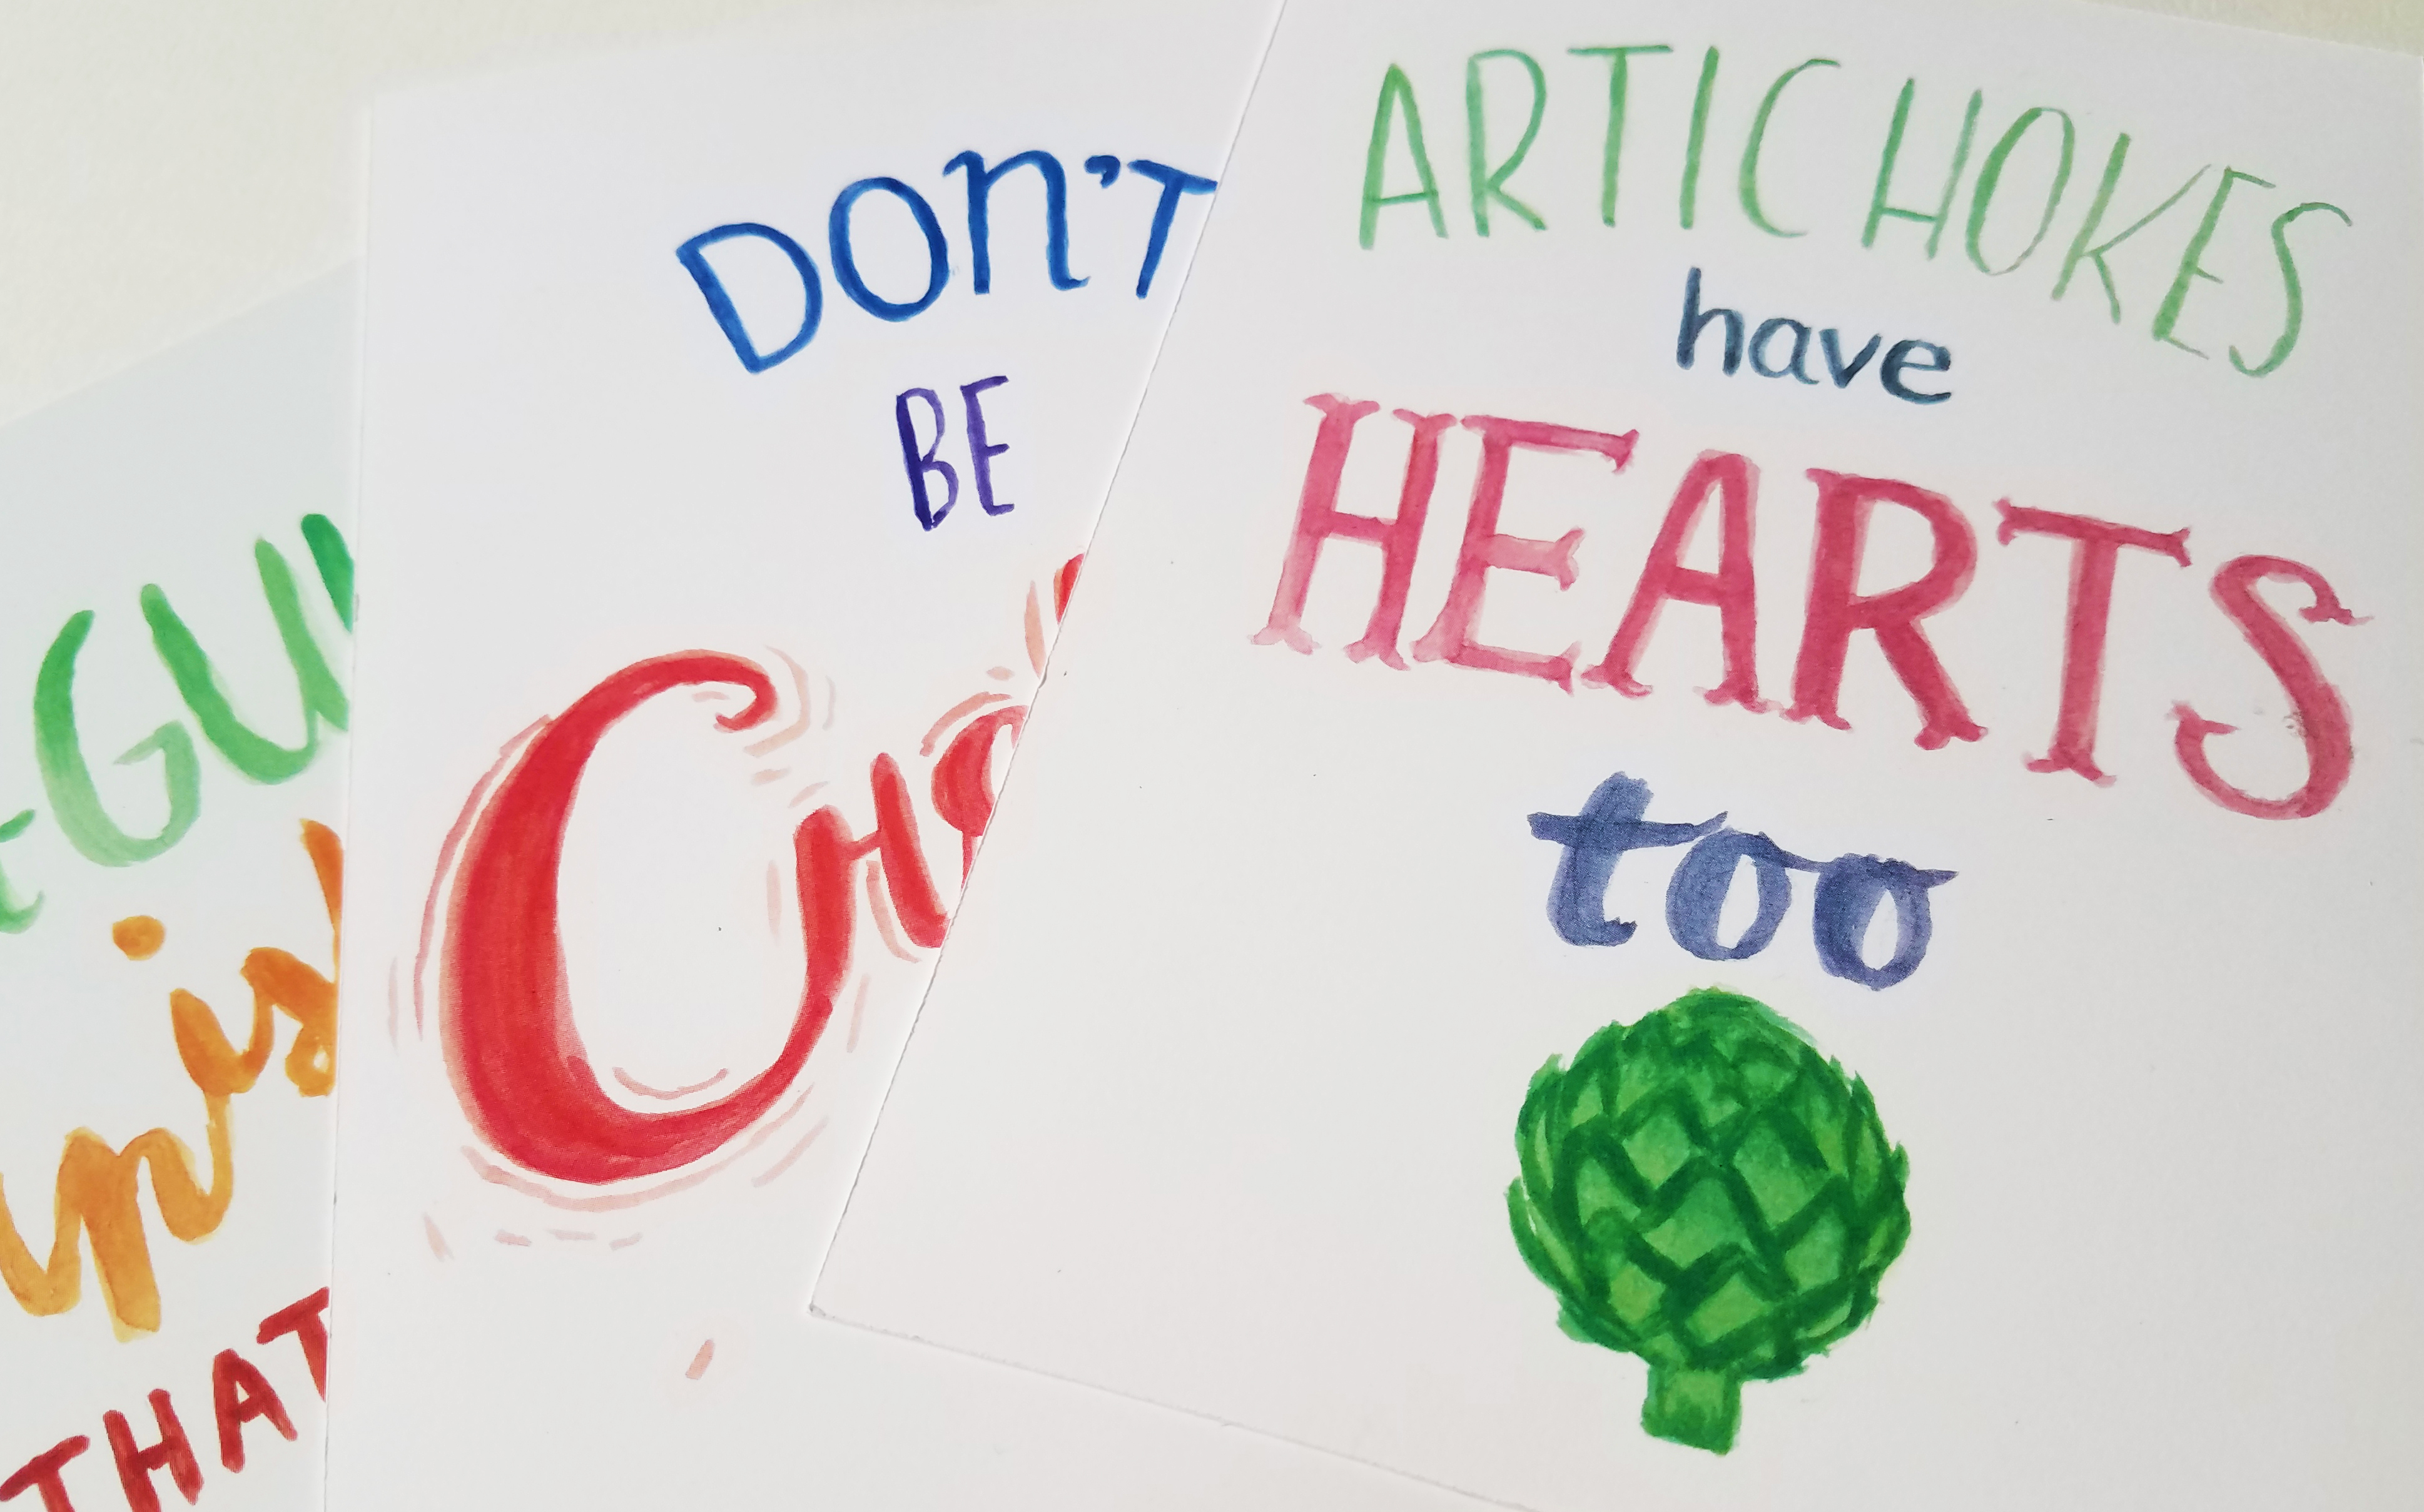 THAT
DON'T
BE
ARTICHOKES
have
HEARTS
too